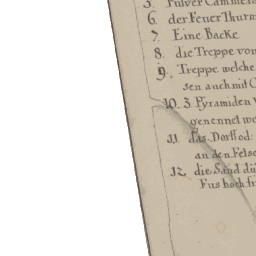 5. Pulver Camme
6. der Feuer Thurm
7. Eine Backe
8. die Treppe vo
9. Treppe welche
sen auch mit
10. 3. Pyramiden
genennet we
11. das Dorf
an den Felse
12. die Sand dü
Fus hoch f